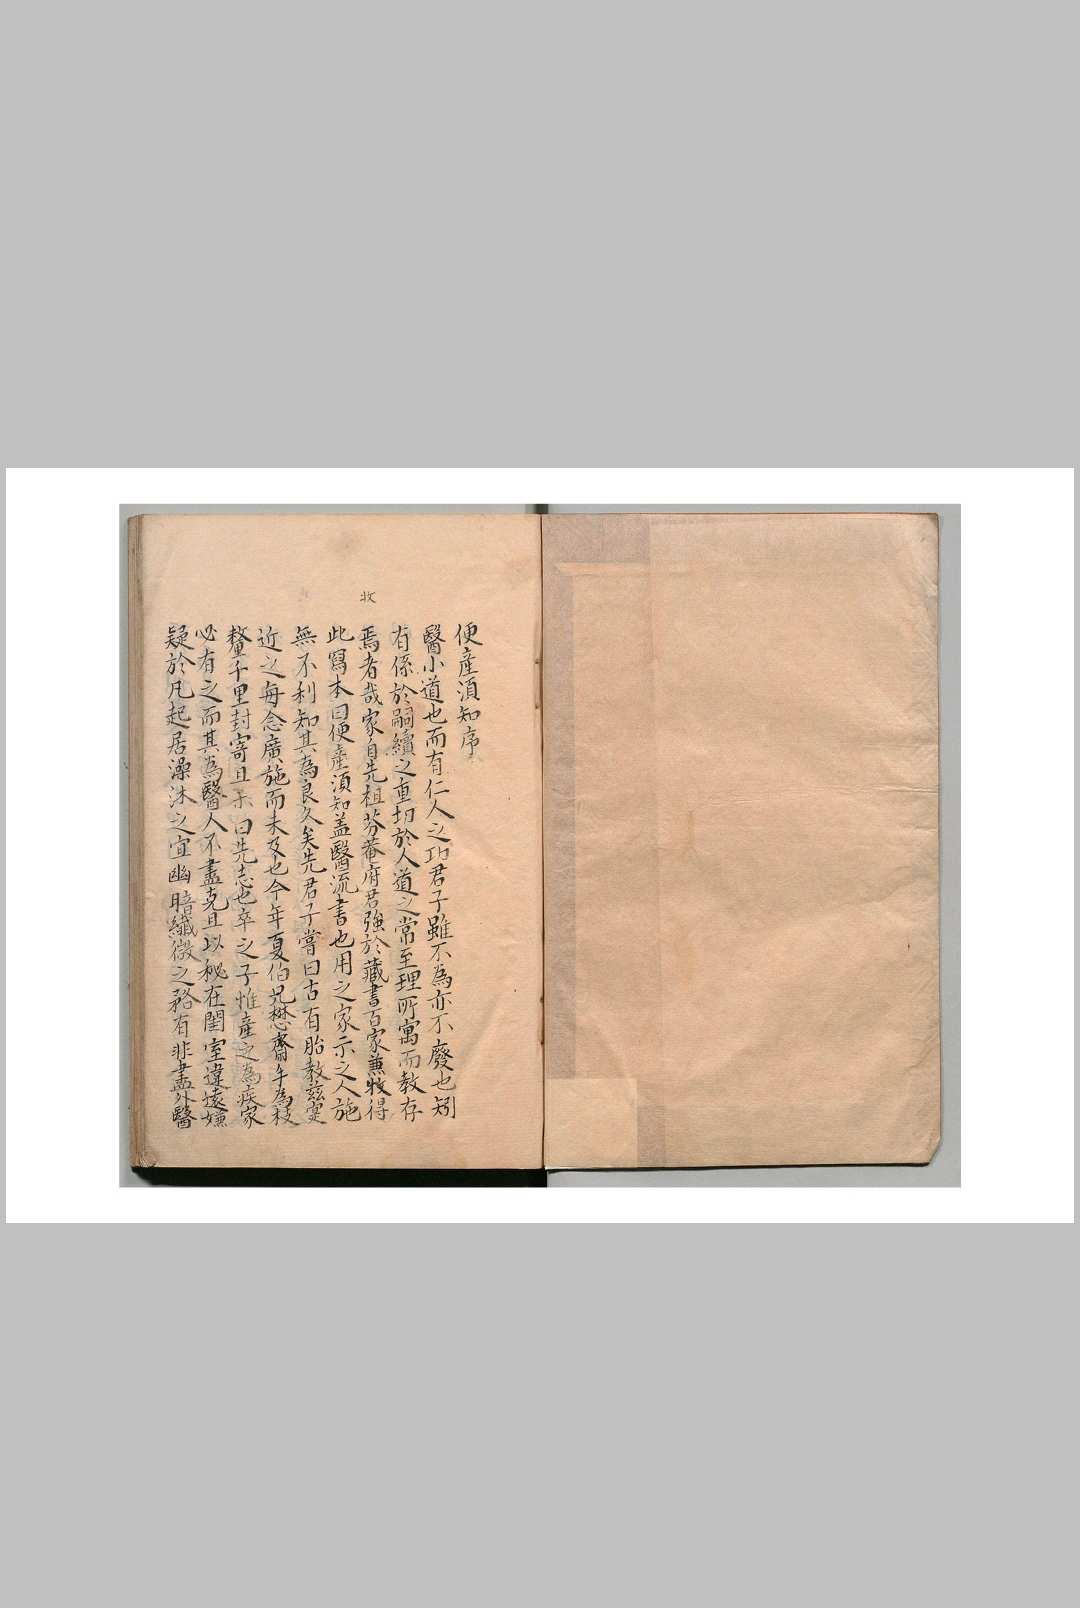 便產須知序
醫小道也而有仁人之功君子雖不為亦不廢也矧
有係於嗣續之重切於人道之常至理所寓而教存
焉者哉家自先祖芬菴府君強於藏書百家兼牧得
收
此寫本曰便產須知盖醫流書也用之家示之人施
無不利知其為良久矣先君子嘗曰古有胎教茲寔
近之每念廣施而未及也今年夏伯兄懋齋手為校
釐千里封寄且 曰先志也卒之子惟產之為疾家
必有之而其為醫人不盡克且以秘在閨室違遠嫌
疑於凡起居澡洙之宜幽暗纖微之務有非盡外醫